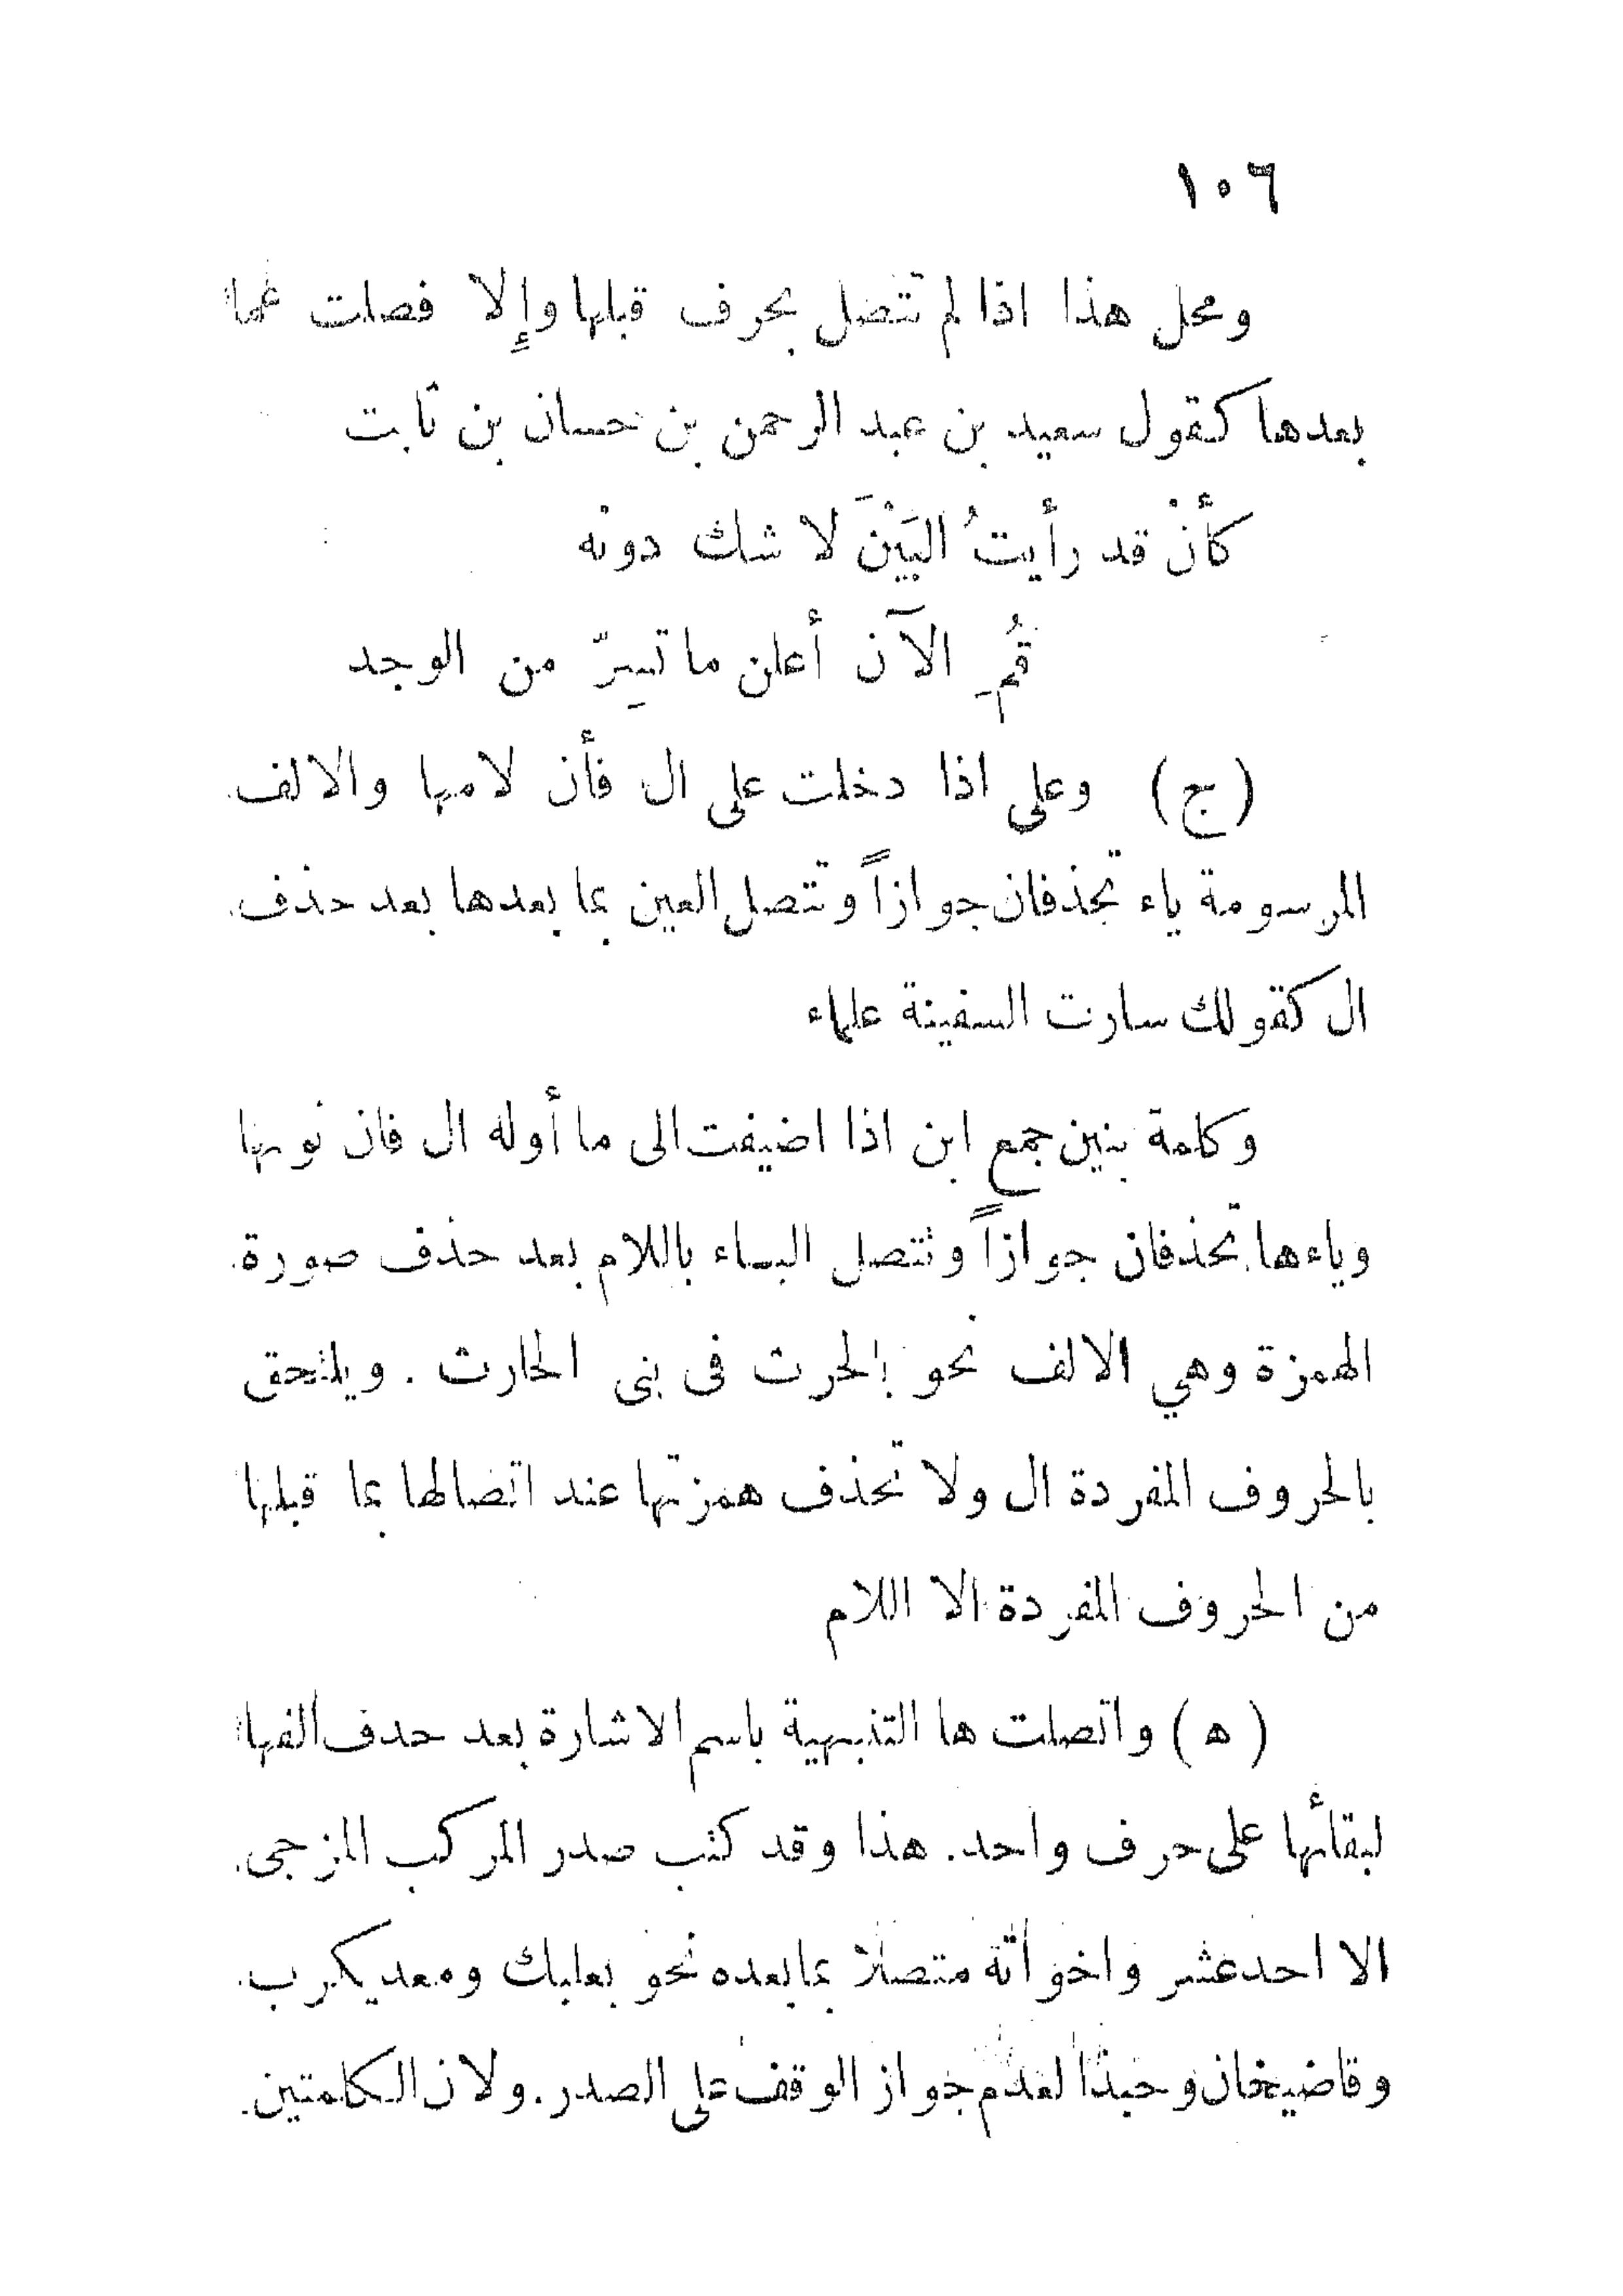 ١٠٦
ومحل هذا اذا لم تتصل بحرف قبلها وإِلا فصلت عما
بعدها كقول سعيد بن عبد الرحمن بن حسان بن ثابت
كأنْ قد رأيتُ البَيْنَ لا شك دونه
قُمِ الآن أعلن ما تسِرّ من الوجد
(ج) وعلى اذا دخلت على ال فأن لامها والالف
المرسومة ياء تحذفان جوازاً وتتصل العين بما بعدها بعد حذف
ال كقولك سارت السفينة علماء
وكلمة بنين جمع ابن اذا اضيفت الى ما أوله ال فان نونها
وياءها تحذفان جوازاً وتتصل الباء باللام بعد حذف صورة
الهمزة وهي الالف نحو بلحرث فى بنى الحارث . ويلتحق
بالحروف المفردة ال ولا تحذف همزتها عند اتصالها بما قبلها
من الحروف المفردة الا اللام
(ه) واتصلت ها التنبيهية باسم الاشارة بعد حدف الفها
لبقائها على حرف واحد. هذا وقد كتب صدر المركب المزجى
الا احدعشر واخواته متصلا بمابعده نحو بعلبك ومعديكرب
وقاضيخان وحبذا لعدم جواز الوقف على الصدر. ولان الكلمتين